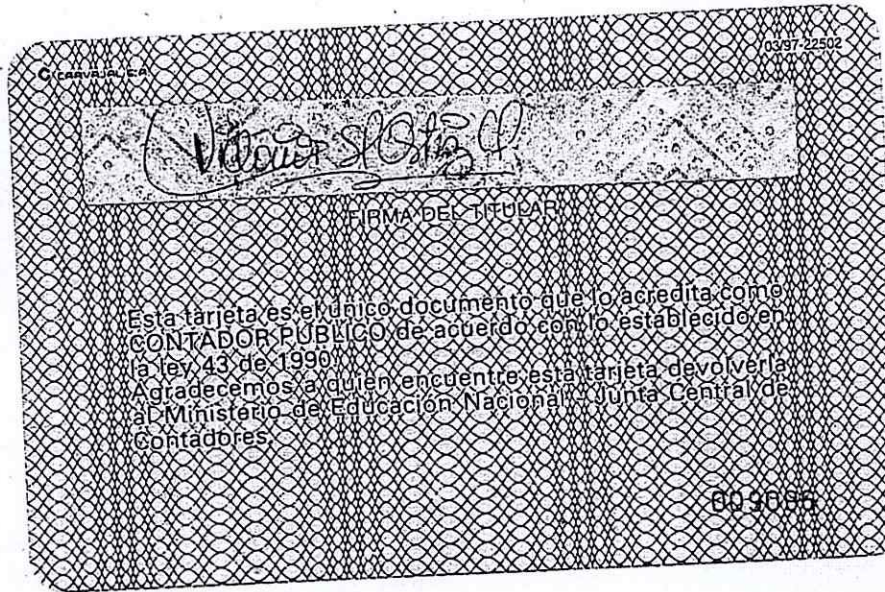 CARVAJAL S.A.
03/97-22502
FIRMA DEL TITULAR
Esta tarjeta es el único documento que lo acredita como
CONTADOR PUBLICO de acuerdo con lo establecido en
la ley 43 de 1990.
Agradecemos a quien encuentre esta tarjeta devolverla
al Ministerio de Educación Nacional - Junta Central de
Contadores.